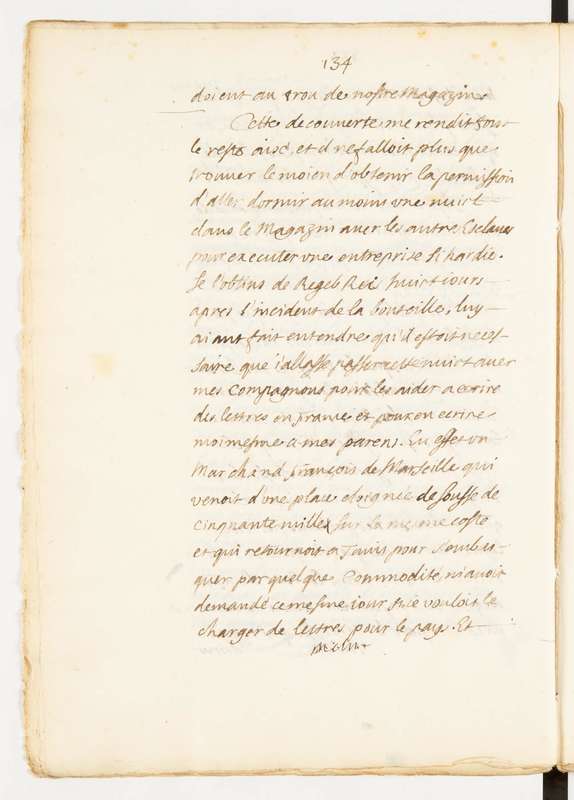 134
doient au trou de nostre Magazin.
Cette decouverte me rendit tout
le reste aisé, et il ne falloit plus que
trouver le moien d'obtenir la permission
d'aller dormir au moins une nuict
dans le Magazin avec les autres Esclaves
pour executer une entreprise si hardie.
Je l'obtins de Regeb Reis huict iours
apres l'incident de la bouteille, luy
aiant fait entendre qu'il estoit neces-
saire que i'allasse passer cette nuict avec
mes Compagnons pour les aider a ecrire
des lettres en france et pour en ecrire
moimesme a mes parens. En effet un
Marchand françois de Marseille qui
venoit d'une place eloignée de Sousse de
cinquante milles sur la mesme coste
et qui retournoit a Tunis pour s'embar-
quer par quelque Commodité, m'avoit
demandé ce mesme iour si ie voulois le
charger de lettres pour le pays. Et